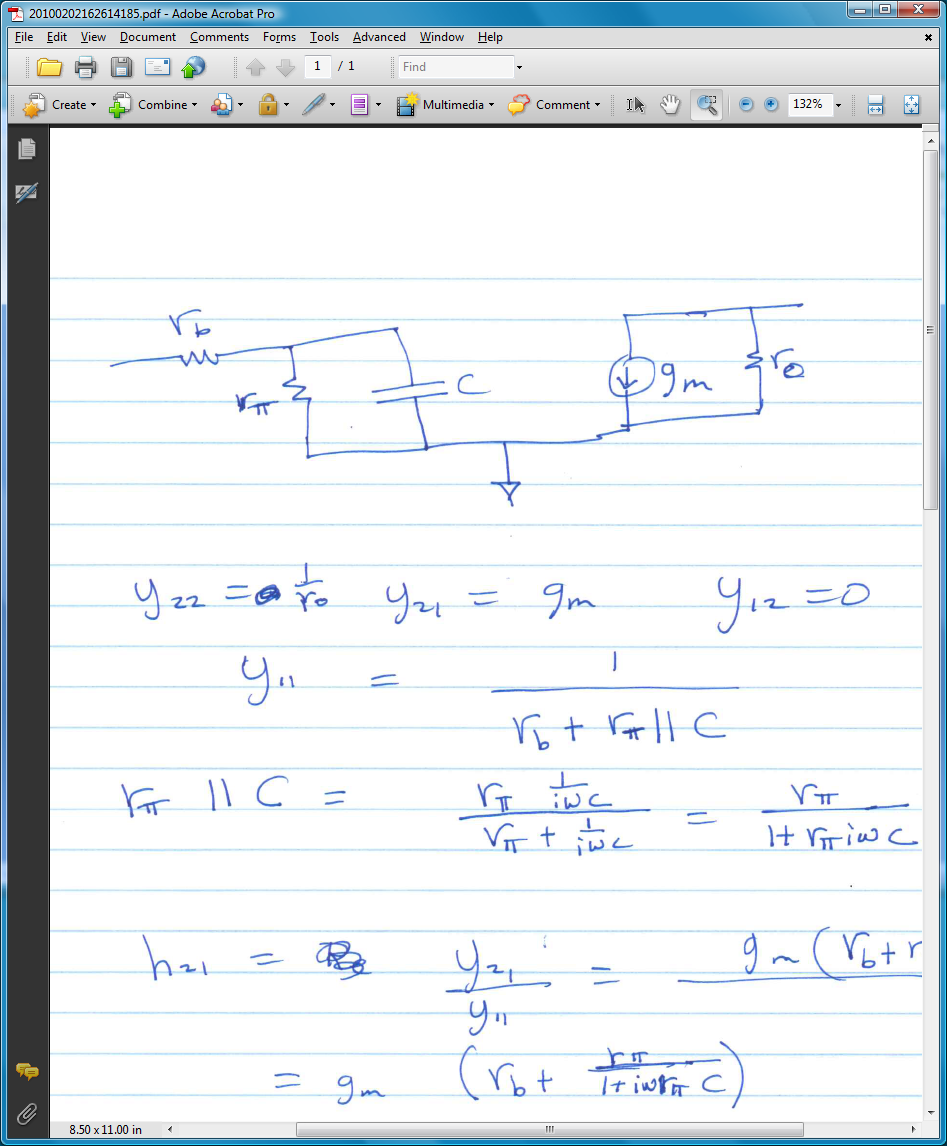 20100202162614185.pdf - Adobe Acrobat Pro
File Edit View Document Comments Forms Tools Advanced Window Help
1 / 1 Find
Create Combine Multimedia Comment 132%
r_b
r_π C g_m r_o
y_22 = 1/r_o y_21 = g_m y_12 = 0
y_11 = 1/(r_b + r_π || C)
r_π || C = (r_π 1/(iωC))/(r_π + 1/(iωC)) = r_π/(1 + r_π iωC)
h_21 = y_21/y_11 = g_m (r_b + r
= g_m (r_b + r_π/(1 + iωr_π C))
8.50 x 11.00 in